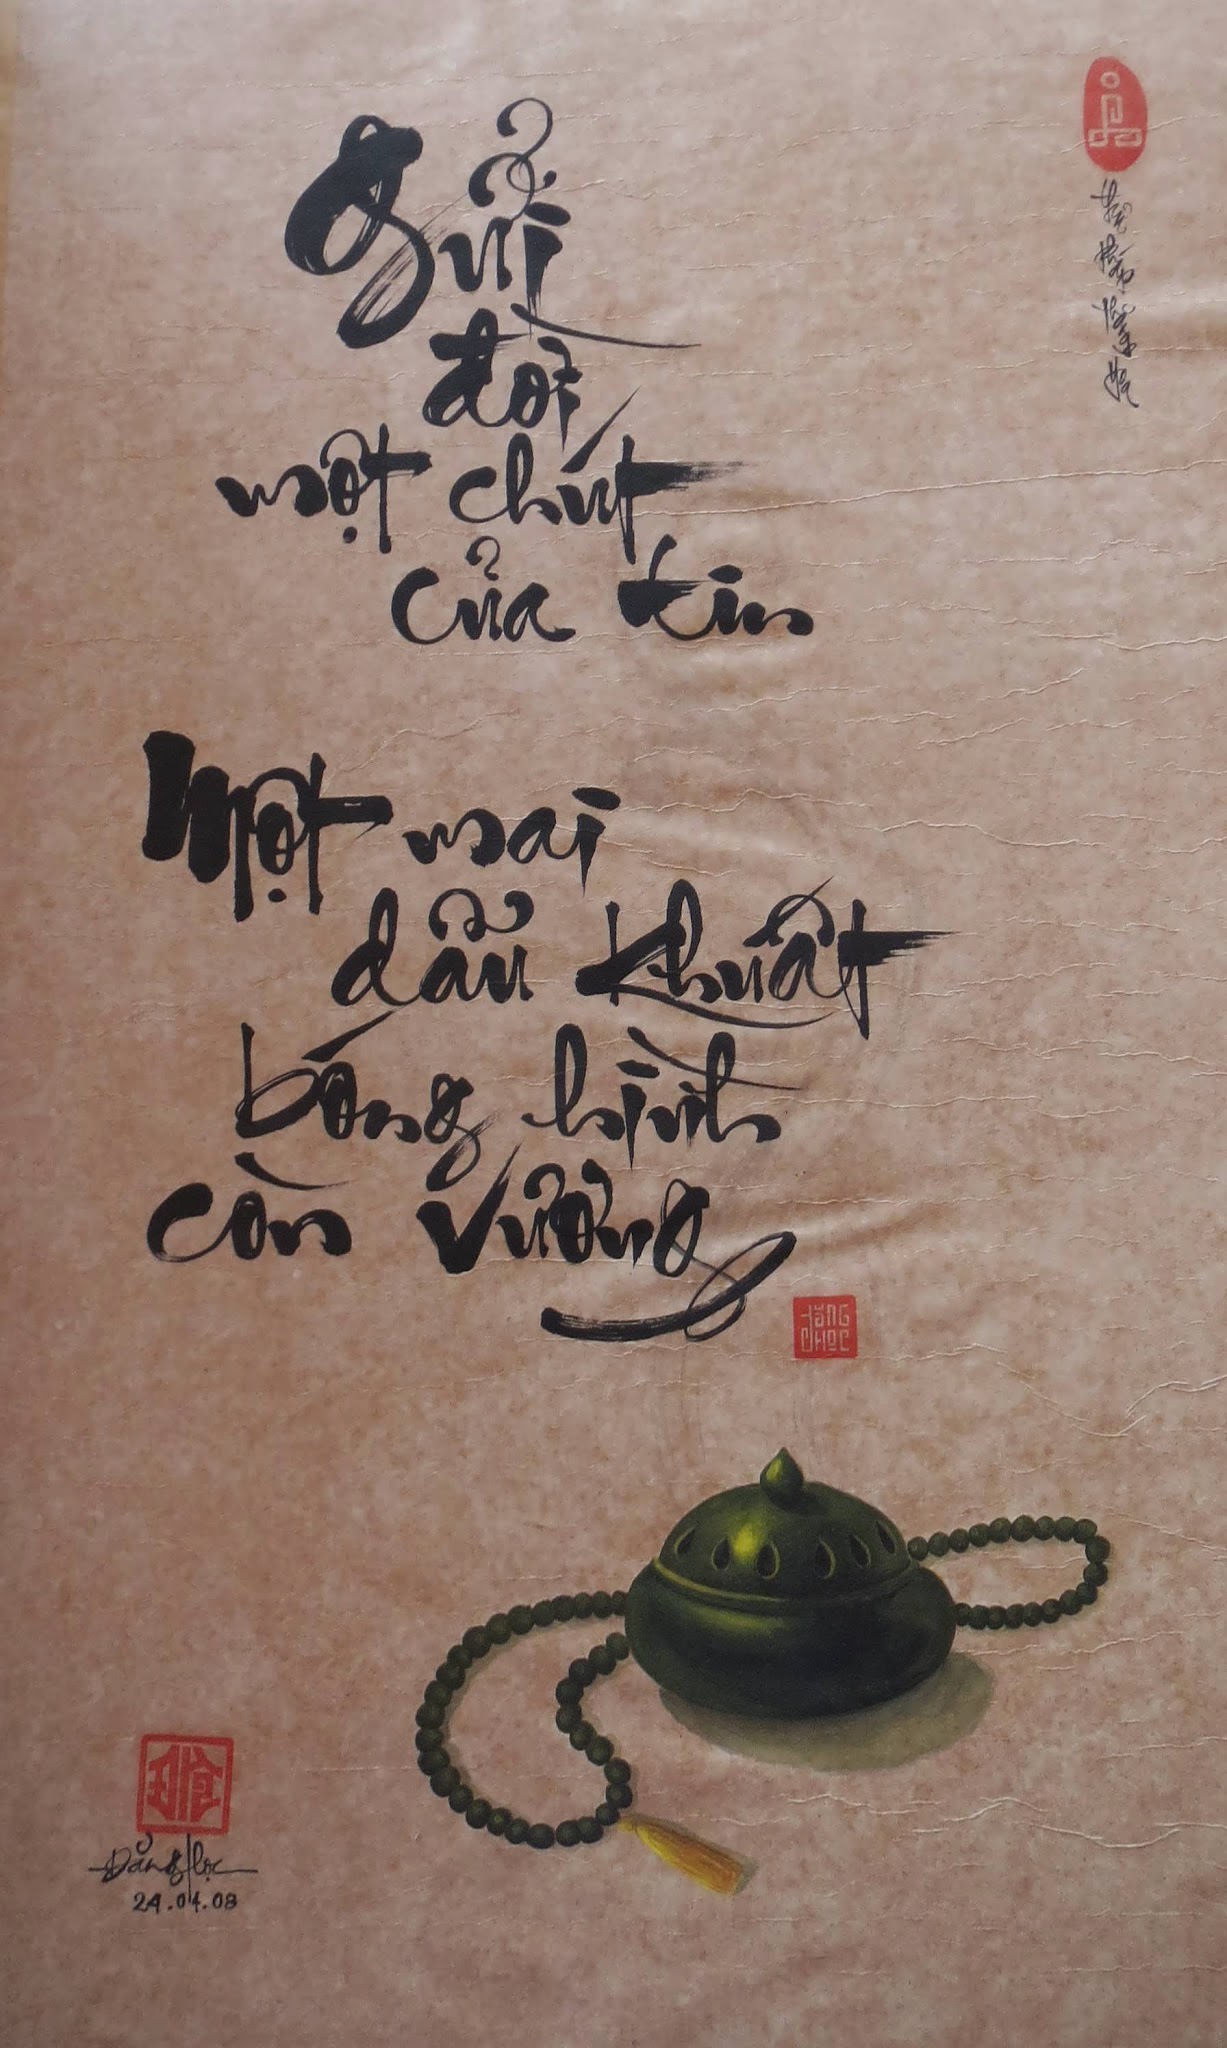 Gửi
đời
một chút
của tin
Một mai
dẫu khuất
bóng hình
còn vương
ĐĂNG HỌC
Đăng Học
24.04.08